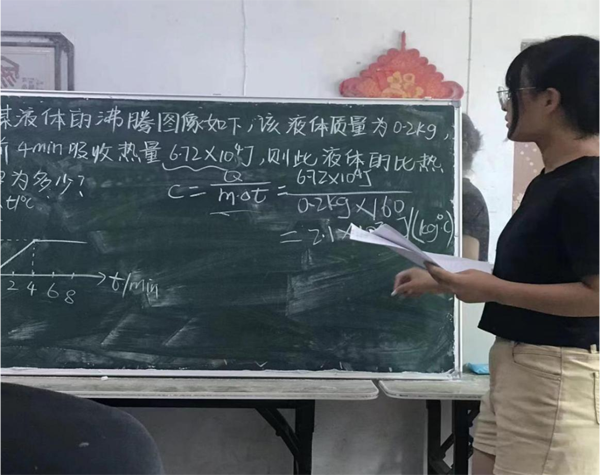 某液体的沸腾图像如下,该液体质量为0.2kg,
前4min吸收热量6.72×10⁴J,则此液体的比热
为多少?
c=Q/m·Δt=6.72×10⁴J/0.2kg×160
t/℃
=2.1× J/(kg·℃)
2 4 6 8 t/min